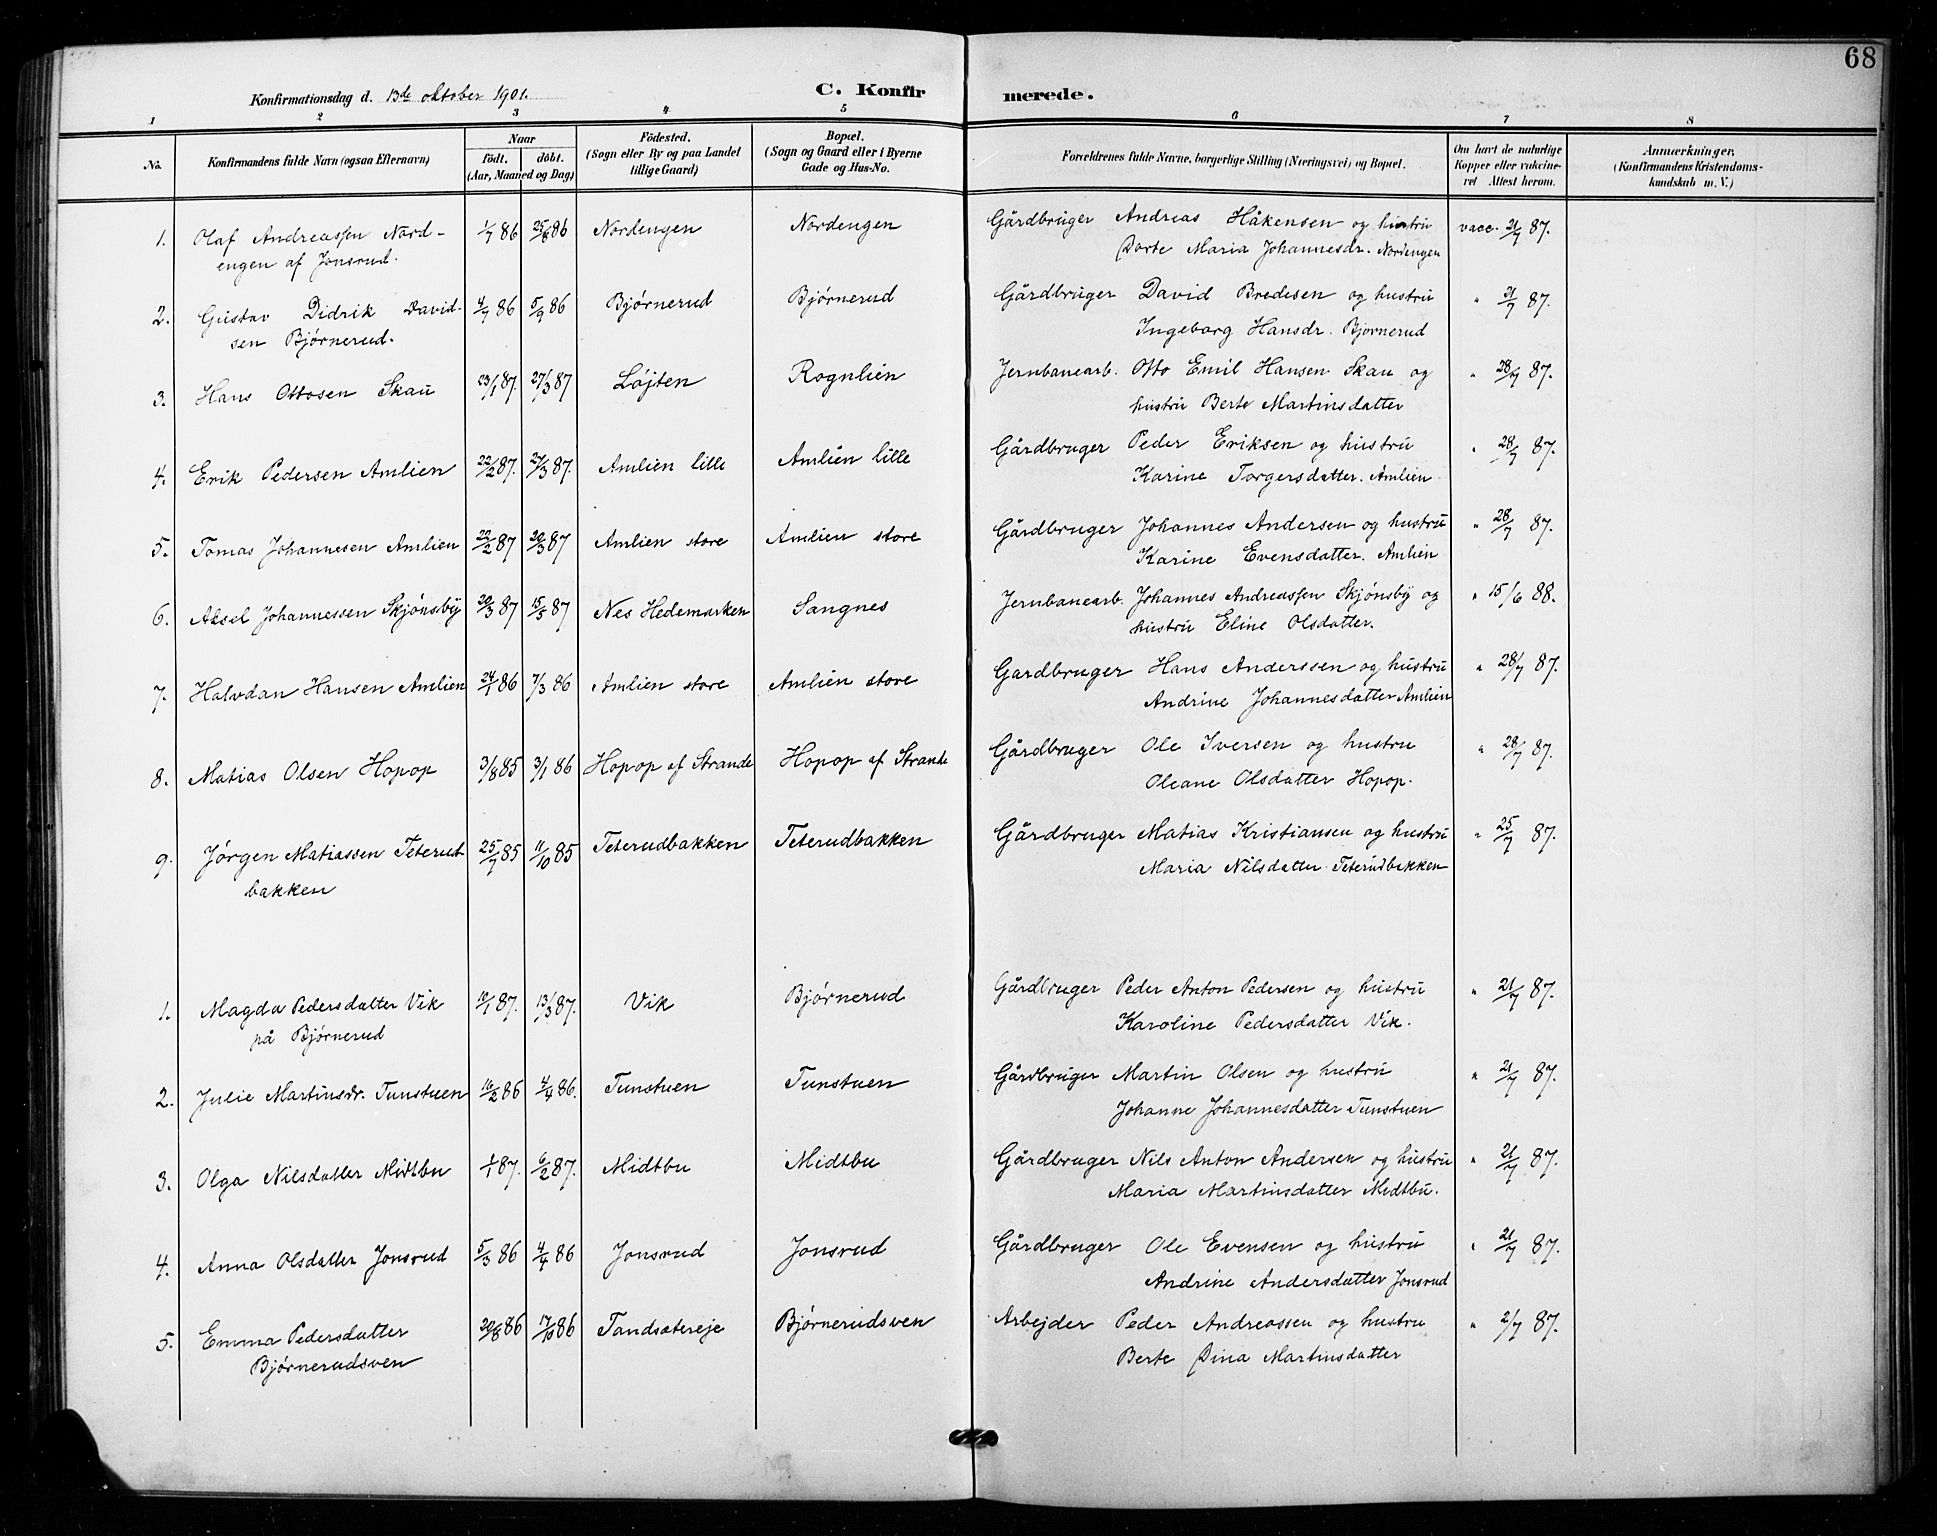 68
Konfirmationsdag d. 13de oktober 1901.
C. Konfirmerede.
1 2 3 4 5 6 7 8
No.
Konfirmandens fulde Navn (ogsaa Efternavn)
Naar
födt. döbt.
(Aar, Maaned og Dag)
Födested.
(Sogn eller By og paa Landet
tillige Gaard)
Bopæl.
(Sogn og Gaard eller i Byerne
Gade og Hus-No.
Forældrenes fulde Navne, borgerlige Stilling (Næringsvei) og Bopæl.
Om havt de naturlige
Kopper eller vakcine-
ret Attest herom.
Anmærkninger.
(Konfirmandens Kristendoms-
kundskab m. V.)
1. Olaf Andreassen Nord- 1/7 86 25/8 86 Nordengen Nordengen Gårdbruger Andreas Håkensen og hustru vacc. 21/7 87.
engen af Jonsrud. Dorte Maria Johannesdr. Nordengen
2. Gustav Didrik David- 4/7 86 5/9 86 Bjørnerud Bjørnerud Gårdbruger David Bredesen og hustru " 21/7 87.
sen Bjørnerud. Ingeborg Hansdr. Bjørnerud
3. Hans Ottosen Skau 23/1 87. 27/3 87 Løjten Rognlien Jernbanearb. Otto Emil Hansen Skau og " 28/7 87.
hustru Berte Martinsdatter
4. Erik Pedersen Amlien 22/2 87. 27/3 87. Amlien lille Amlien lille Gårdbruger Peder Eriksen og hustru " 28/7 87.
Karine Torgersdatter. Amlien
5. Tomas Johannesen Amlien 22/2 87 20/3 87 Amlien store Amlien store Gårdbruger Johannes Andersen og hustru " 28/7 87.
Karine Evensdatter. Amlien
6. Aksel Johannessen Skjønsby 20/3 87 15/5 87 Nes Hedemarken Sangnes Jernbanearb. Johannes Andreassen Skjønsby og " 15/6 88.
hustru Eline Olsdatter.
7. Halvdan Hansen Amlien 24/1 86 7/3 86 Amlien store Amlien store Gardbruger Hans Anderssen og hustru " 28/7 87.
Andrine Johannesdatter Amlien
8. Matias Olsen Hopop 3/8 85 3/1 86 Hopop af Strande Hopop af Strande Gårdbruger Ole Iversen og hustru " 28/7 87.
Oleane Olsdatter Hopop.
9. Jørgen Matiassen Teterud 25/7 85 11/10 85 Teterudbakken Teterudbakken Gårdbruger Matias Kristiansen og hustru " 25/7 87.
bakken Maria Nilsdatter Teterudbakken
1. Magda Pedersdatter Vik 10/1 87. 13/3 87. Vik Bjørnerud Gårdbruger Peder Anton Pedersen og hustru " 21/7 87.
på Bjørnerud Karoline Pedersdatter Vik.
2. Julie Martinsdr. Tunstuen 16/2 86 4/4 86. Tunstuen Tunstuen Gårdbruger Martin Olsen og hustru " 21/7 87.
Johanne Johannesdatter Tunstuen
3. Olga Nilsdatter Midtbu 1/1 87. 6/2 87. Midtbu Midtbu Gårdbruger Nils Anton Andersen og hustru " 21/7 87.
Maria Martinsdatter Midtbu.
4. Anna Olsdatter Jonsrud 5/3 86 4/4 86 Jonsrud Jonsrud Gårdbruger Ole Evensen og hustru " 21/7 87.
Andrine Andersdatter Jonsrud
5. Emma Pedersdatter 20/8 86 17/10 86 Tandsætereje Bjørnerudsven Arbejder Peder Andreassen og hustru " 21/7 87.
Bjørnerudsven Berte Dina Martinsdatter